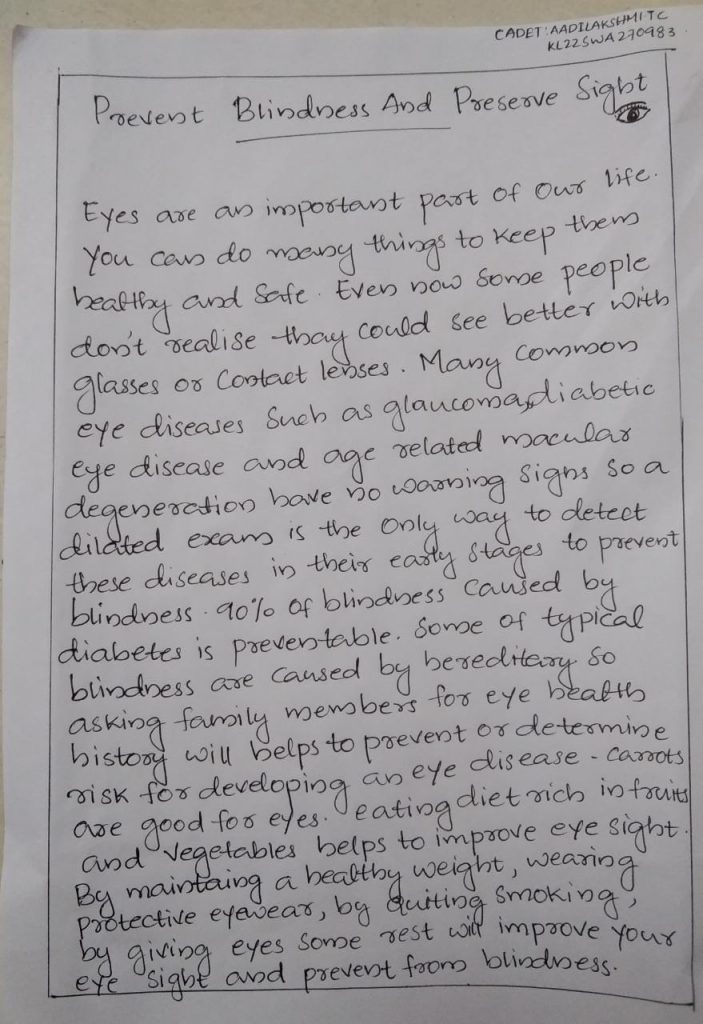 CADET : AADILAKSHMI TC
KL22SWA270983.
Prevent Blindness And Preserve Sight
Eyes are an important part of our life.
You can do many things to keep them
healthy and safe. Even now some people
don't realise thay could see better with
glasses or contact lenses. Many common
eye diseases such as glaucoma, diabetic
eye disease and age related macular
degeneration have no warning signs so a
dilated exam is the only way to detect
these diseases in their early stages to prevent
blindness. 90% of blindness caused by
diabetes is preventable. Some of typical
blindness are caused by hereditary so
asking family members for eye health
history will helps to prevent or determine
risk for developing an eye disease - carrots
are good for eyes. eating diet rich in fruits
and vegetables helps to improve eye sight.
By maintaing a healthy weight, wearing
protective eyewear, by quiting smoking,
by giving eyes some rest will improve your
eye sight and prevent from blindness.